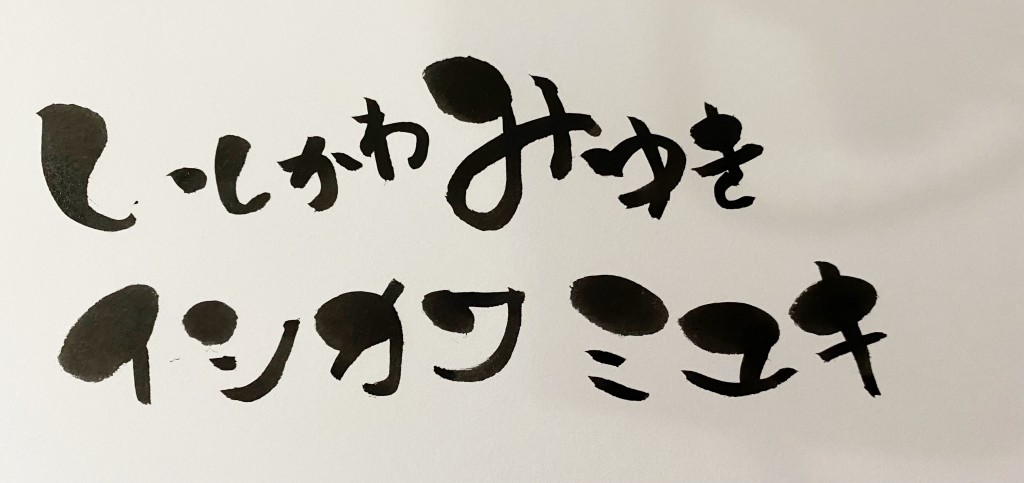 いしかわみゆき
イシカワミユキ